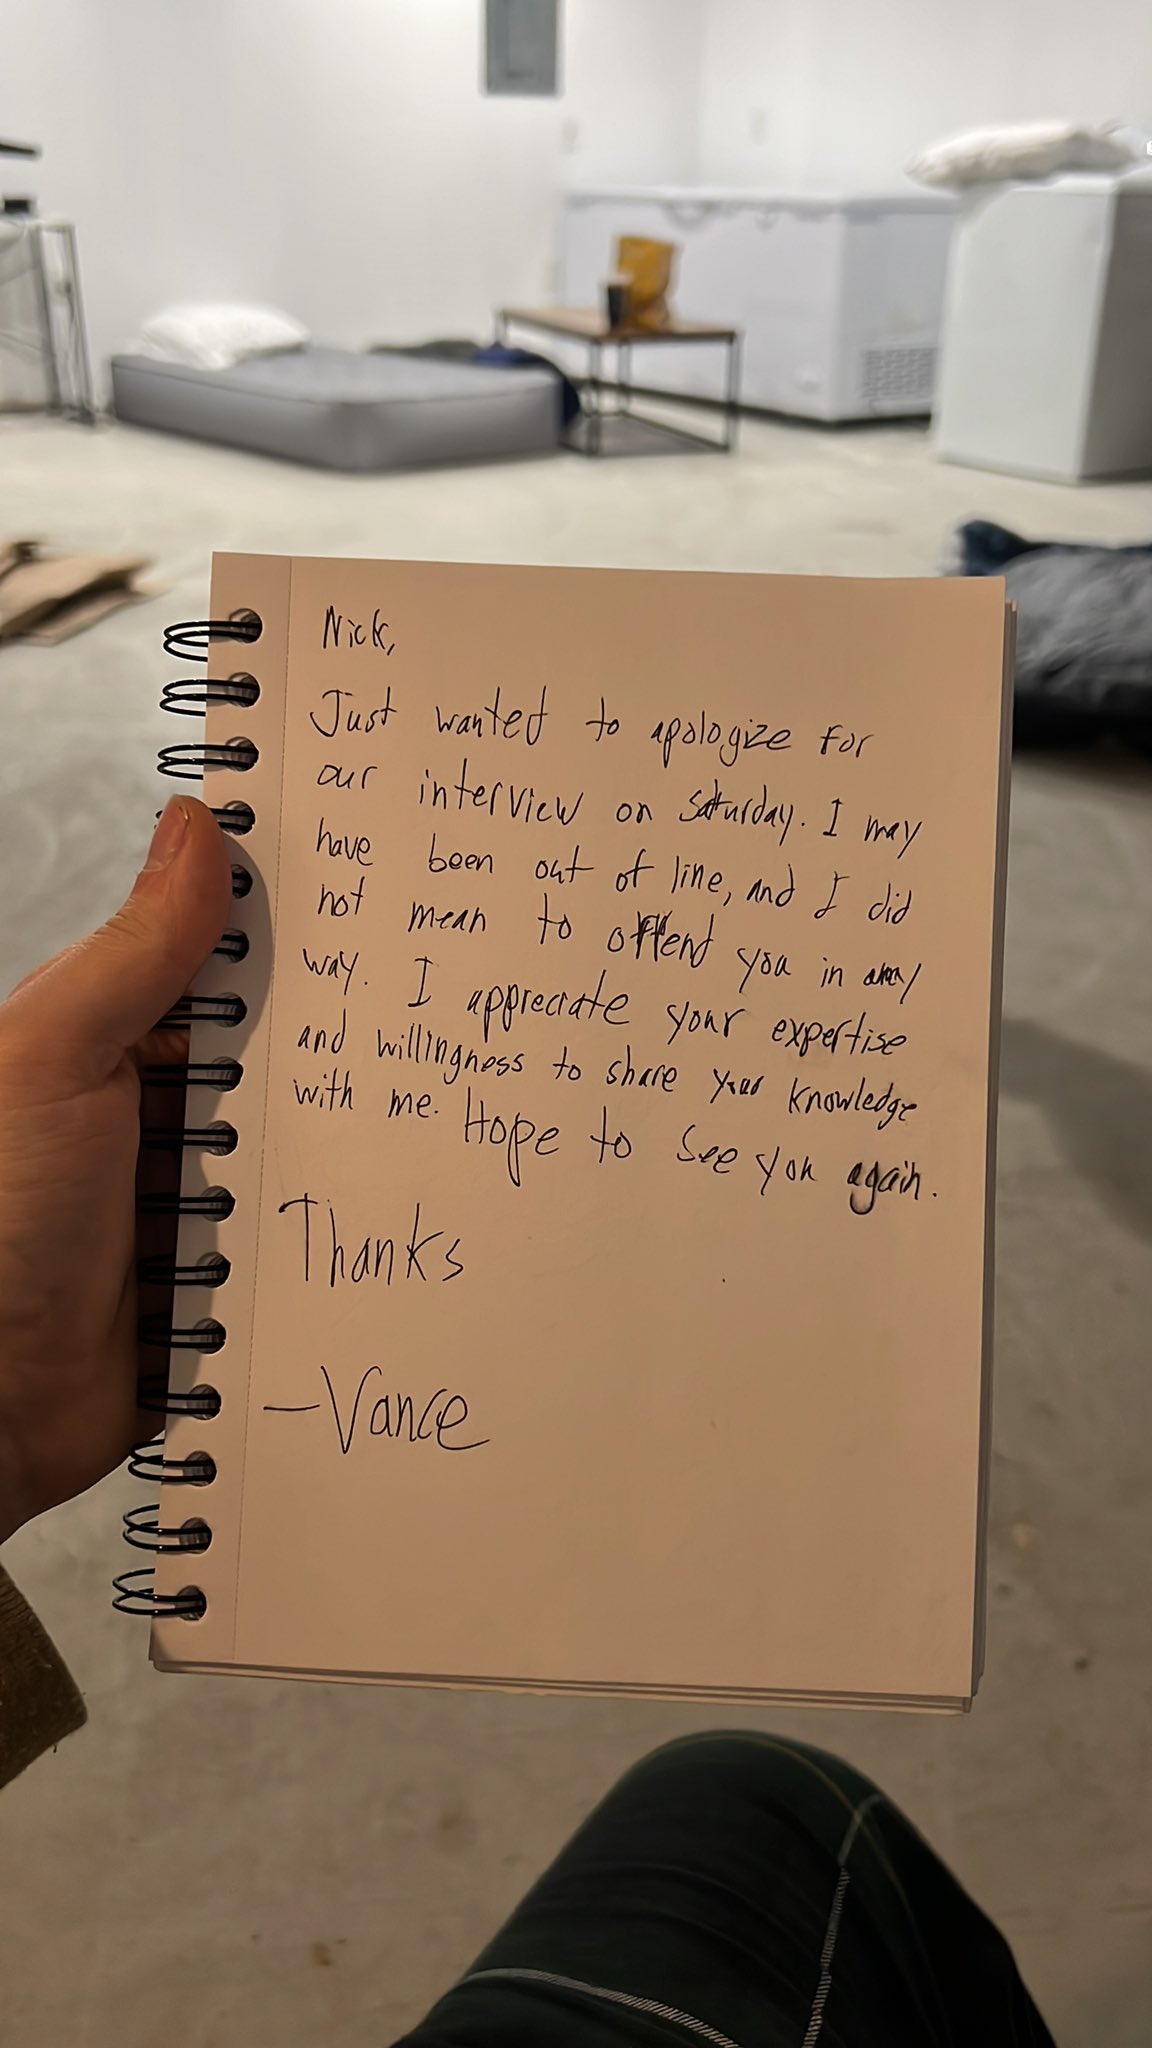 Nick,
Just wanted to apologize for
our interview on Saturday. I may
have been out of line, and I did
not mean to offend you in any
way. I appreciate your expertise
and willingness to share your knowledge
with me. Hope to see you again.
Thanks
—Vance